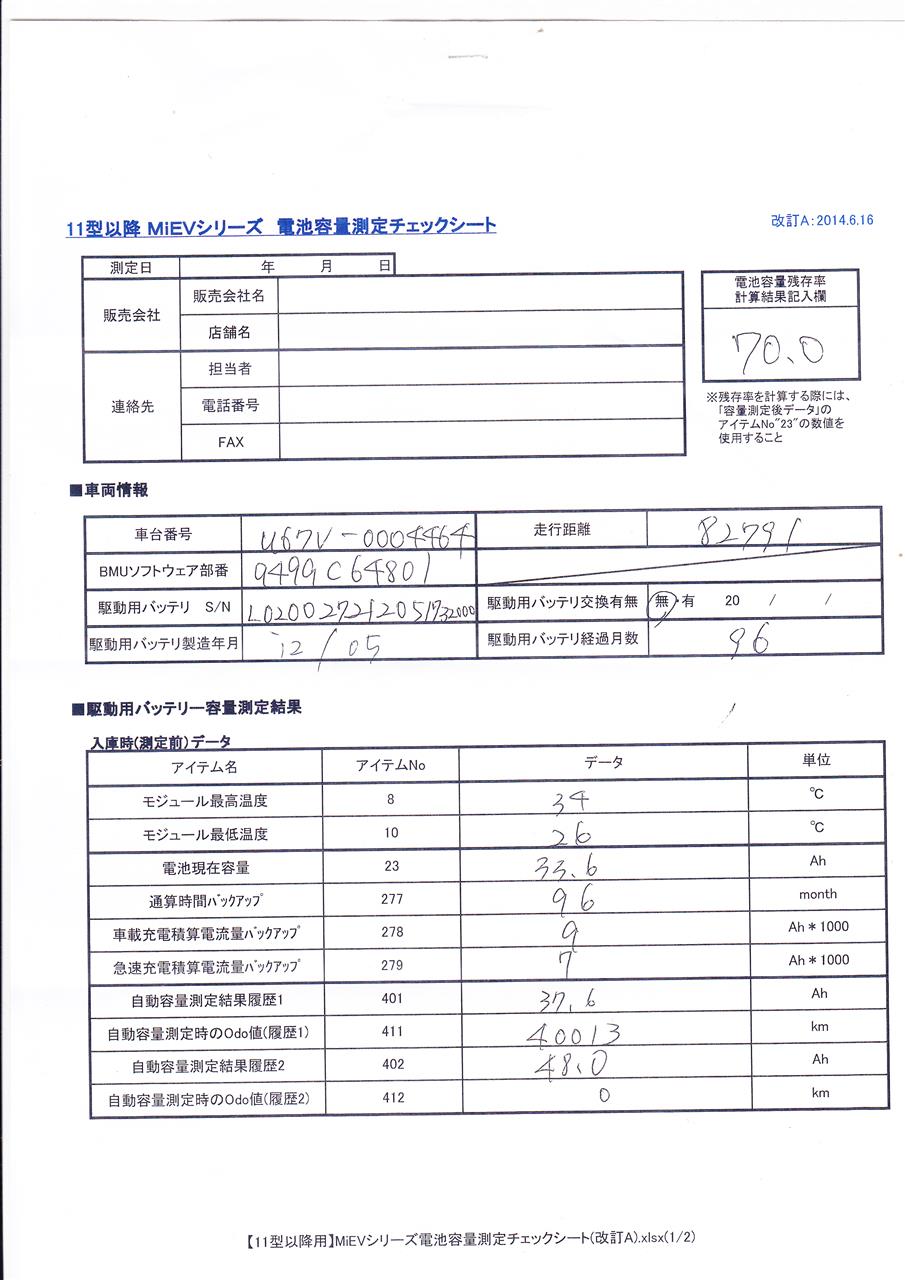 11型以降 MiEVシリーズ 電池容量測定チェックシート
改訂A:2014.6.16
測定日 年 月 日
販売会社
販売会社名
店舗名
連絡先
担当者
電話番号
FAX
電池容量残存率
計算結果記入欄
70.0
※残存率を計算する際には、
「容量測定後データ」の
アイテムNo"23"の数値を
使用すること
■車両情報
車台番号 U67V-0004464 走行距離 82791
BMUソフトウェア部番 9499C64801
駆動用バッテリ S/N L020027212051732000 駆動用バッテリ交換有無 無・有 20 / /
駆動用バッテリ製造年月 12/05 駆動用バッテリ経過月数 96
■駆動用バッテリー容量測定結果
入庫時(測定前)データ
アイテム名 アイテムNo データ 単位
モジュール最高温度 8 34 ℃
モジュール最低温度 10 26 ℃
電池現在容量 23 33.6 Ah
通算時間ﾊﾞｯｸｱｯﾌﾟ 277 96 month
車載充電積算電流量ﾊﾞｯｸｱｯﾌﾟ 278 9 Ah*1000
急速充電積算電流量ﾊﾞｯｸｱｯﾌﾟ 279 7 Ah*1000
自動容量測定結果履歴1 401 37.6 Ah
自動容量測定時のOdo値(履歴1) 411 40013 km
自動容量測定結果履歴2 402 48.0 Ah
自動容量測定時のOdo値(履歴2) 412 0 km
【11型以降用】MiEVシリーズ電池容量測定チェックシート(改訂A).xlsx(1/2)